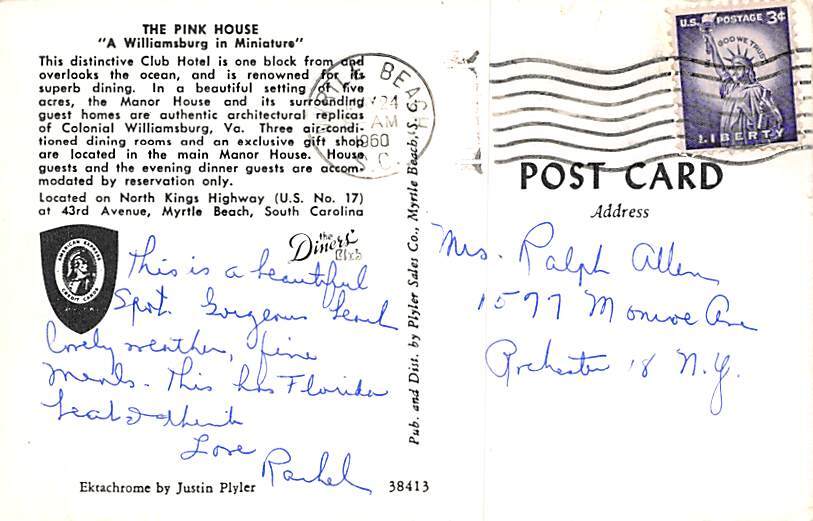 THE PINK HOUSE
"A Williamsburg in Miniature"
This distinctive Club Hotel is one block from and
overlooks the ocean, and is renowned for its
superb dining. In a beautiful setting of five
acres, the Manor House and its surrounding
guest homes are authentic architectural replicas
of Colonial Williamsburg, Va. Three air-condi-
tioned dining rooms and an exclusive gift shop
are located in the main Manor House. House
guests and the evening dinner guests are accom-
modated by reservation only.
Located on North Kings Highway (U.S. No. 17)
at 43rd Avenue, Myrtle Beach, South Carolina
AMERICAN EXPRESS
CREDIT CARDS
the
Diners'
Club
This is a beautiful
Spot. Gorgeous
Lovely weather, fine
meals. This has Florida
beat I think
Love
Rachel
Ektachrome by Justin Plyler
38413
Pub. and Dist. by Plyler Sales Co., Myrtle Beach, S. C.
BEACH
24
AM
1960
S.C.
U.S. POSTAGE 3¢
IN GOD WE TRUST
LIBERTY
POST CARD
Address
Mrs. Ralph Allen
1577 Monroe Ave
Rochester 18 N.Y.